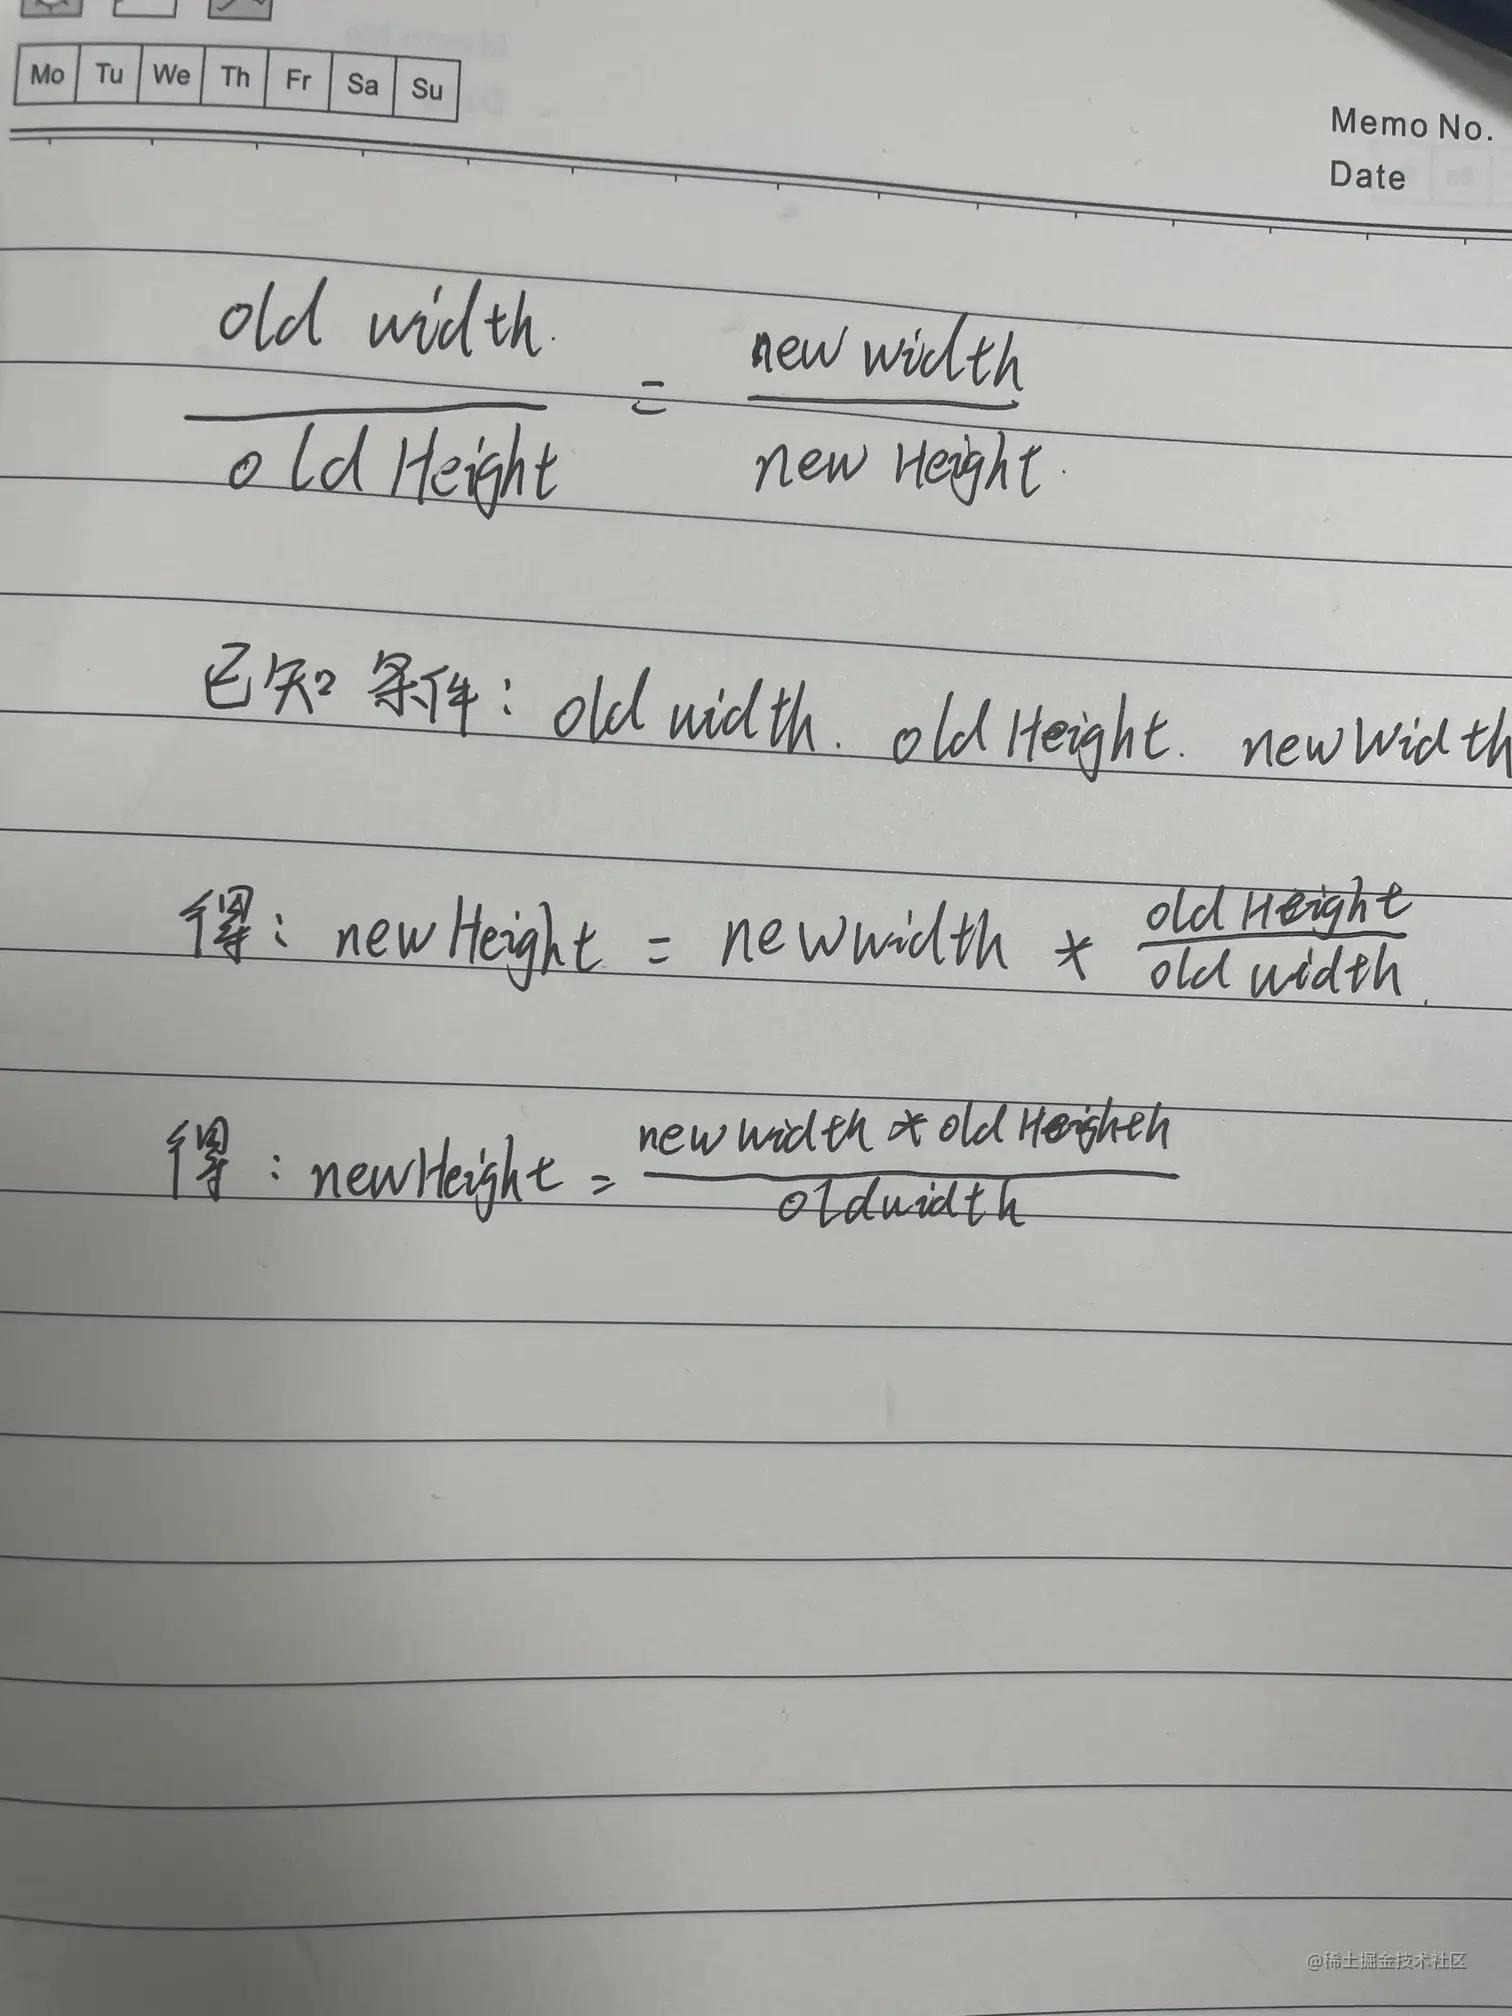 Mo Tu We Th Fr Sa Su
Memo No.
Date
old width. = new width
old Height new Height.
已知条件: old width. old Height. new Width
得: new Height = new width * old Height
old width.
得: newHeight = new width * old Heighth
oldwidth
@稀土掘金技术社区